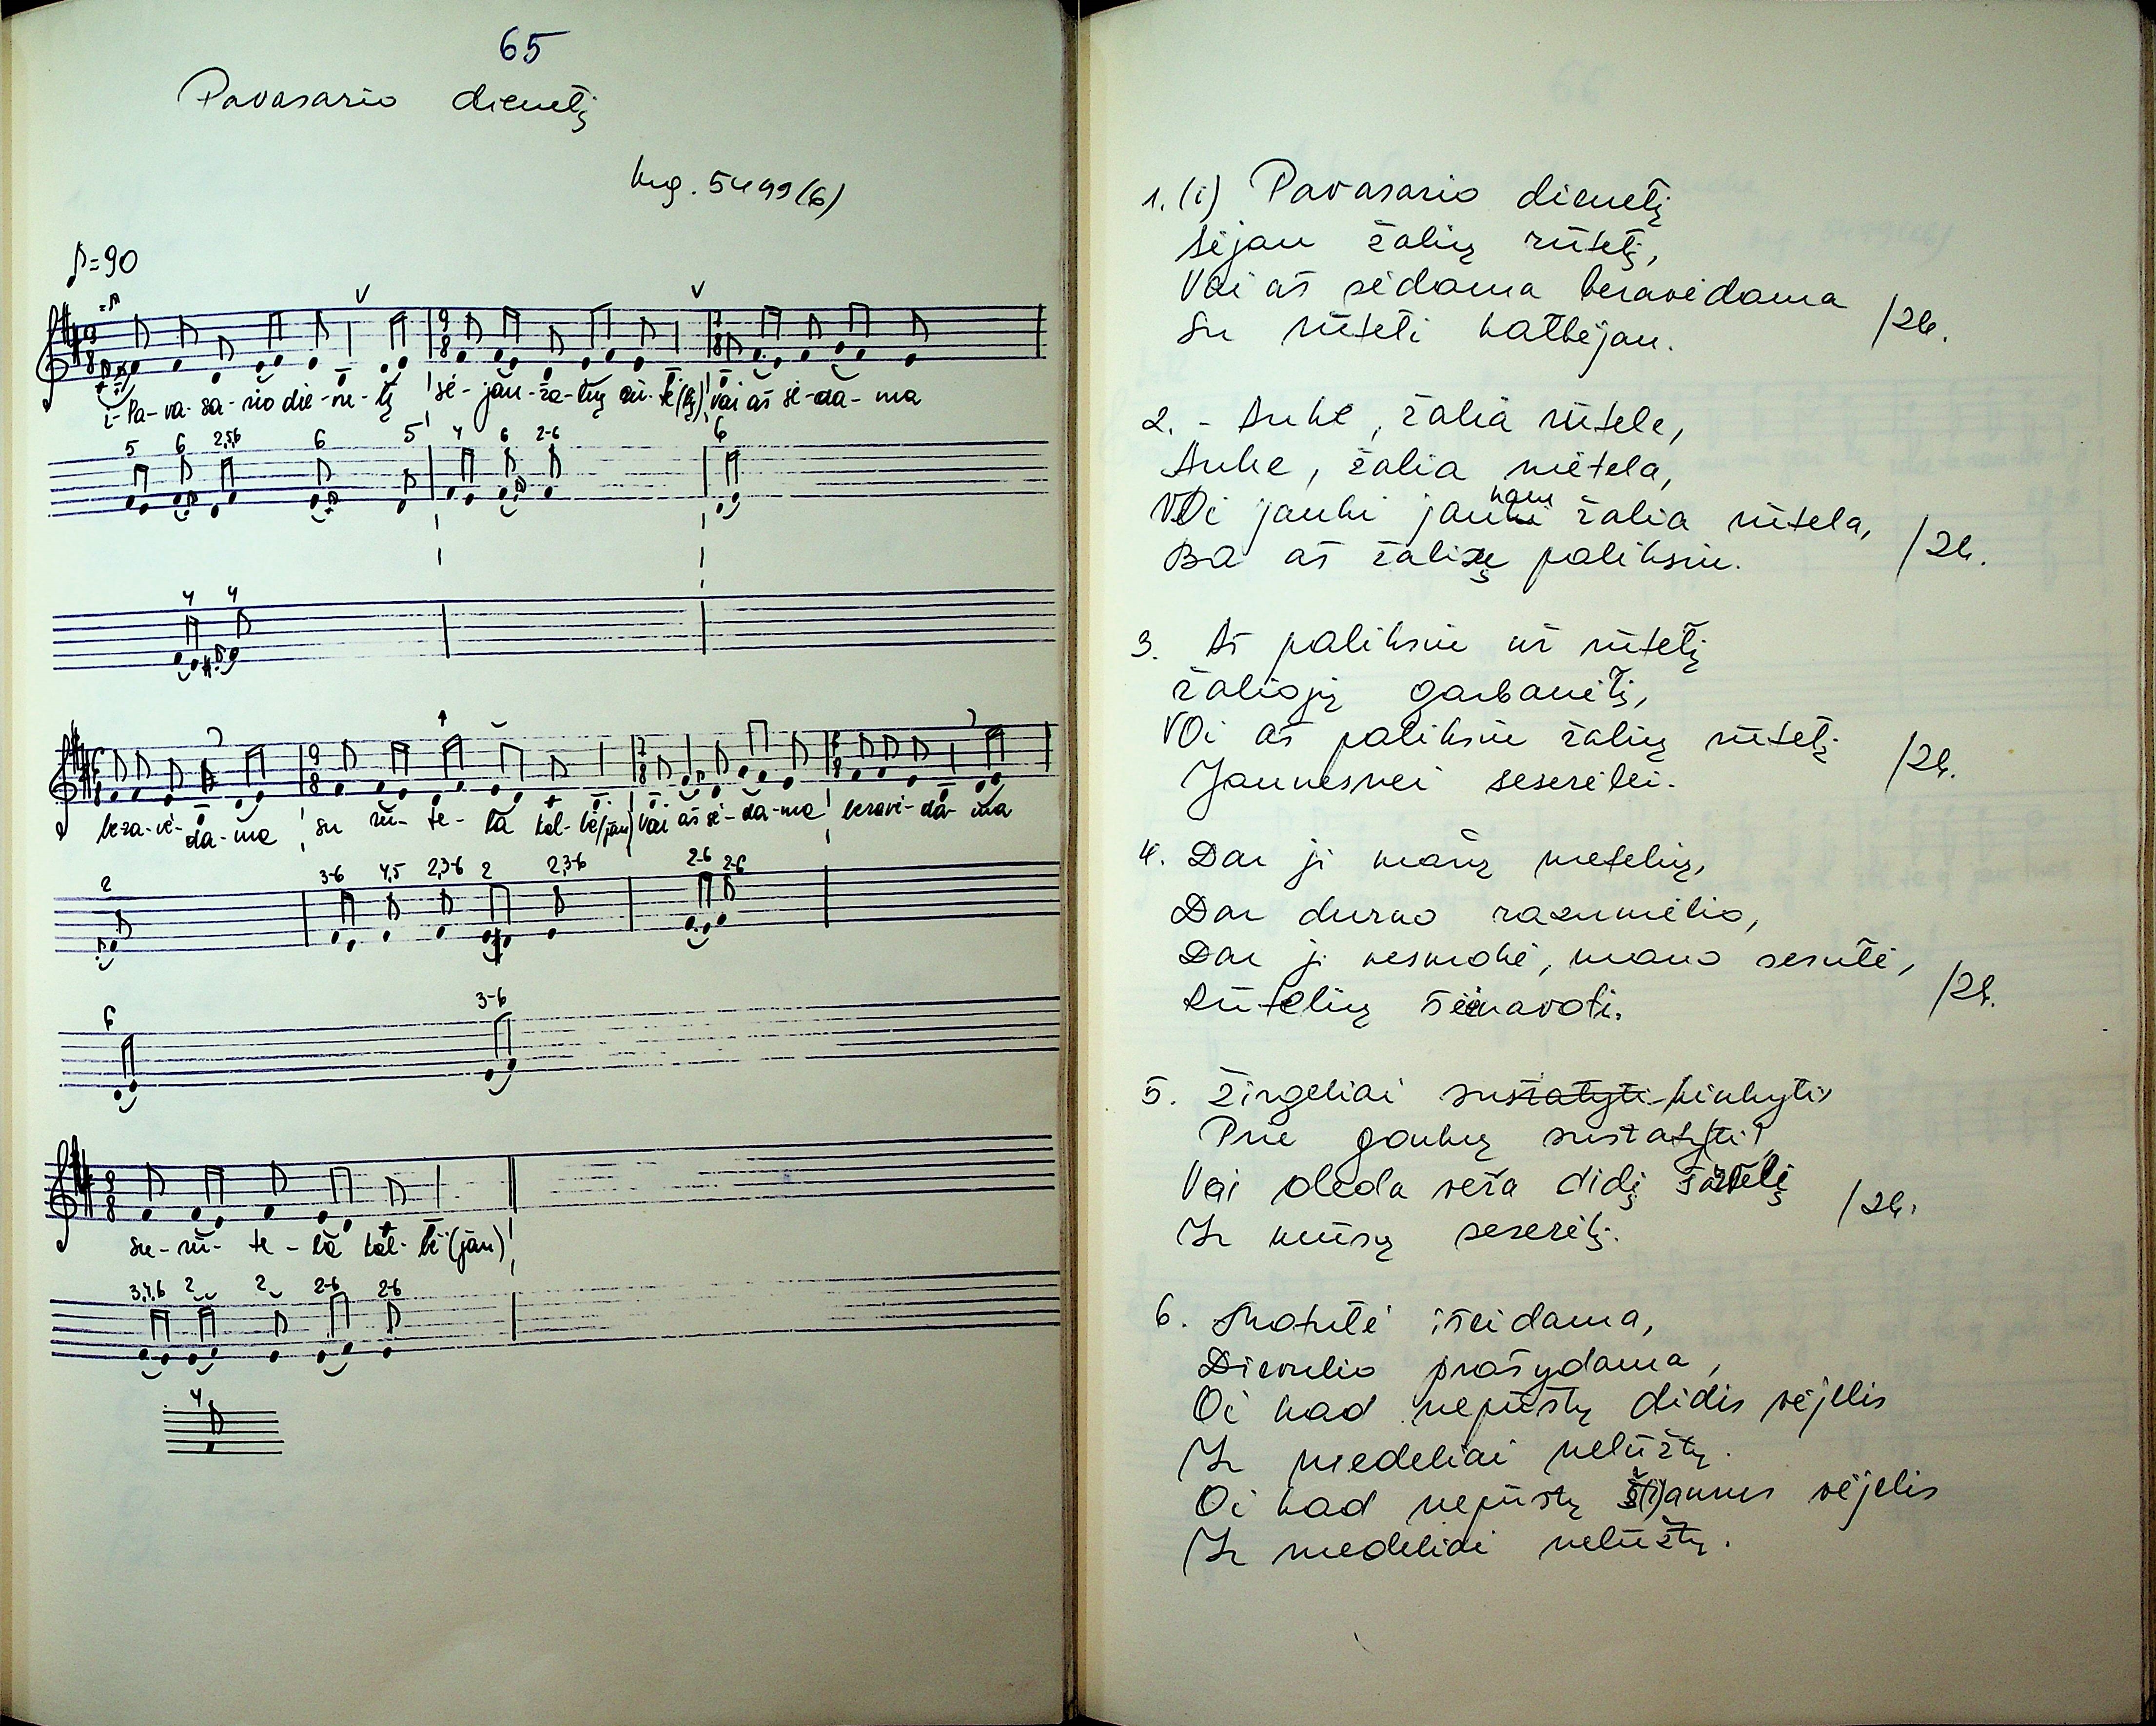 65
Pavasario dienelį
5499(6)
♪=90
i-Pa-va-sa-rio die-ne-lį sė-jau-ža-lių rū-te(lę) vai aš sė-da-ma
5 6 2,5,6 6 5 4 6 2-6 6
4 4
be-ra-vė-da-ma su rū-te-la kal-bė(jau) vai aš sė-da-ma beravė-da-ma
2 3-6 4,5 2,3-6 2 2,3-6 2-6 2-6
6 3-6
su-rū-te-la kal-bė(jau)
3,4,6 2 2 2-6 2-6
4
1. (i) Pavasario dienelį
sėjau žalių rūtelį,
Vai aš sėdama beravėdama
Su rūteli kalbėjau. /2k.
2. - Auke, žalia rūtele,
Auke, žalia rūtela,
VOi jauki jauki žalia rūtela,
Ba aš paliksiu. /2k.
3. Aš paliksiu rūtelį
žaliąjį garbanėlį,
VOi aš paliksiu žalių rūtelį
Jaunesnei seserėlei. /2k.
4. Dar ji mažų metelių,
Dar durno razumėlio,
Dar ji nesmokė, mano sesutė,
Rūtelių šėnavoti. /2k.
5. Žirgeliai sustatyti kinkyti
Prie gonkų sustatyti
Vai deda veža didį
Ir mūsų seserėlį. /2k.
6. Motulė išeidama,
Dievulio prašydama,
Oi kad nepūstų didis vėjelis
Ir medeliai nelūžtų.
Oi kad nepūstų š(i)aurus vėjelis
Ir medeliai nelūžtų.